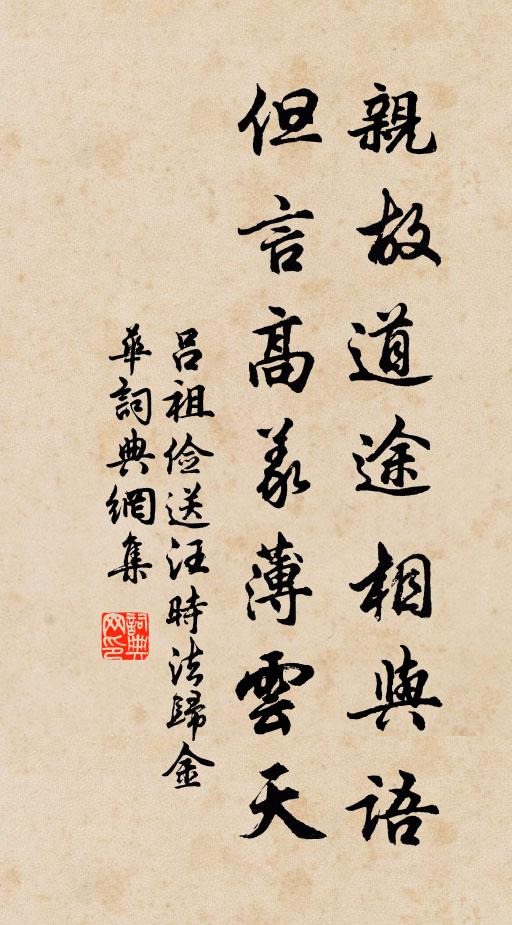 親故道途相與語
但言高義薄雲天
呂祖儉送汪時法歸金
華詞典網集
詞典
网印